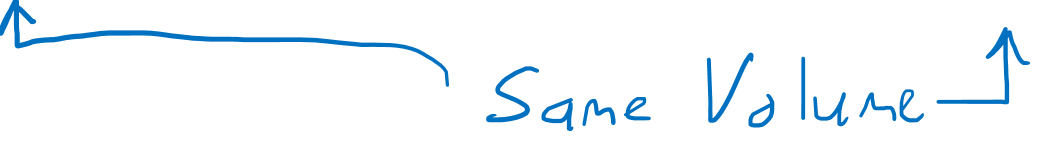 Same Volume